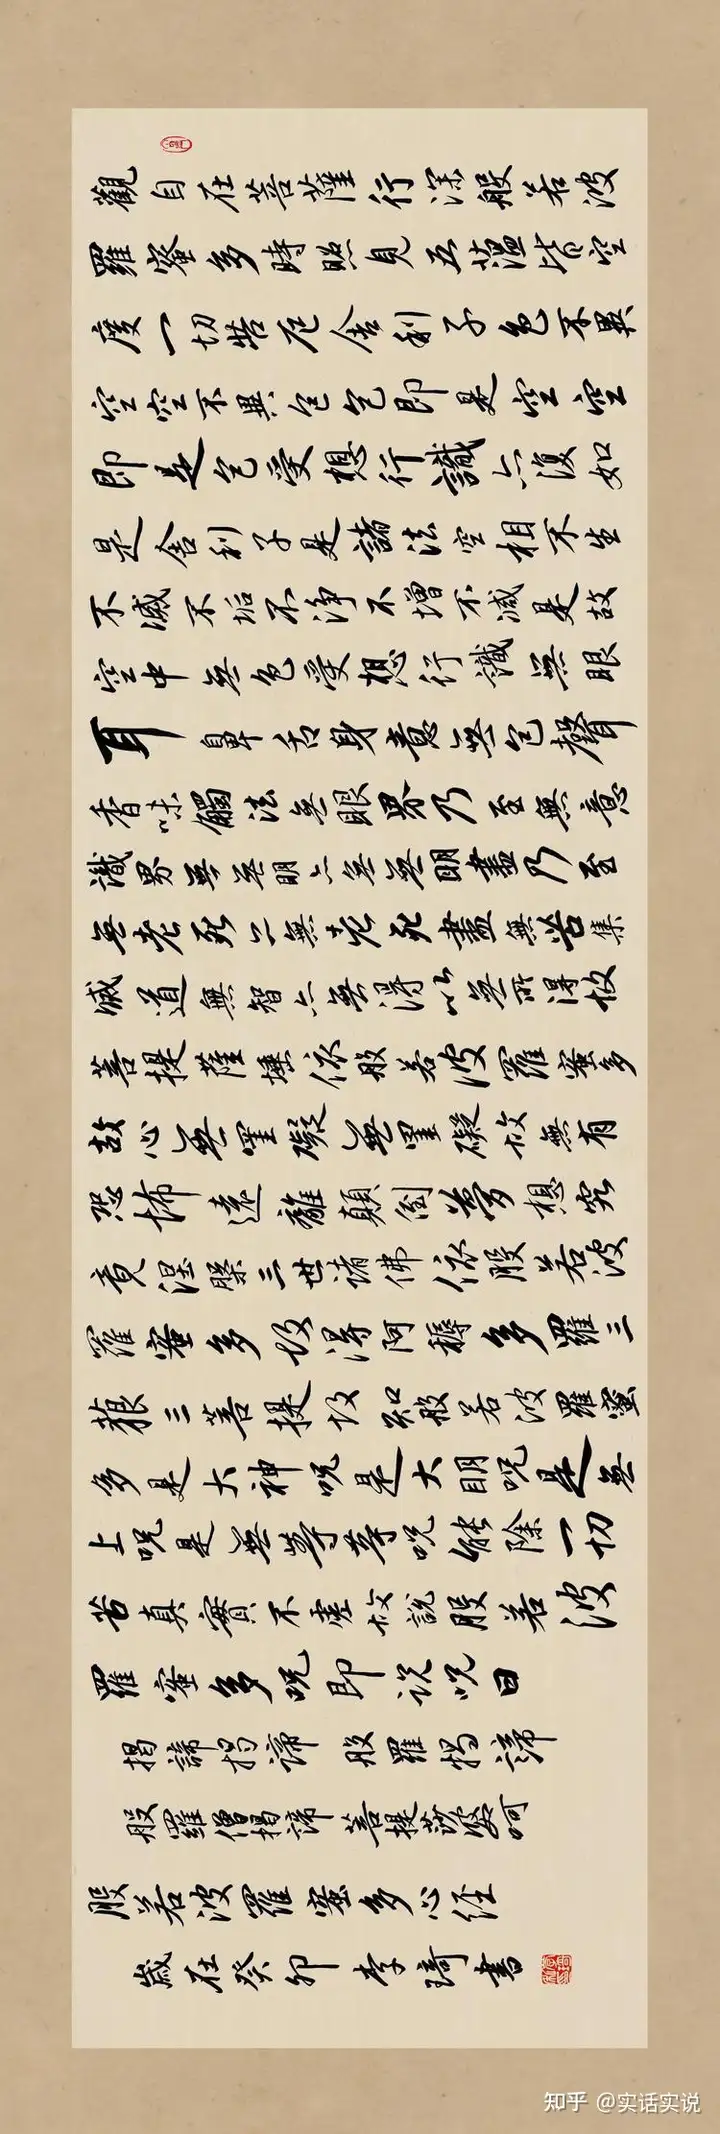 觀自在菩薩行深般若波
羅蜜多時照見五蘊皆空
度一切苦厄舍利子色不異
空空不異色色即是空空
即是色受想行識亦復如
是舍利子是諸法空相不生
不滅不垢不淨不增不減是故
空中無色受想行識無眼
耳鼻舌身意無色聲
香味觸法無眼界乃至無意
識界無無明亦無無明盡乃至
無老死亦無老死盡無苦集
滅道無智亦無得以無所得故
菩提薩埵依般若波羅蜜多
故心無罣礙無罣礙故無有
恐怖遠離顛倒夢想究
竟涅槃三世諸佛依般若波
羅蜜多故得阿耨多羅三
藐三菩提故知般若波羅蜜
多是大神咒是大明咒是無
上咒是無等等咒能除一切
苦真實不虛故說般若波
羅蜜多咒即说咒曰
揭諦揭諦 般羅揭諦
般羅僧揭諦 菩提莎婆呵
般若波羅蜜多心经
歲在癸卯 李琦書
知乎 @实话实说